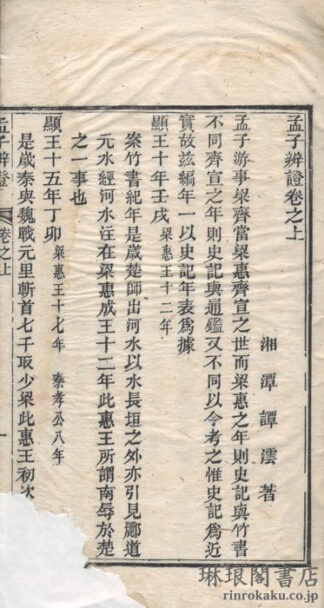 孟子辨證卷之上
湘潭譚澐著
孟子游事梁齊當梁惠齊宣之世而梁惠之年則史記與竹書
不同齊宣之年則史記與通鑑又不同以今考之惟史記爲近
實故茲編年一以史記年表爲據
顯王十年壬戌 梁惠王十二年
案竹書紀年是歲楚師出河水以水長垣之外亦引見酈道
元水經河水注在梁惠成王十二年此惠王所謂南辱於楚
之一事也
顯王十五年丁卯 梁惠王十七年 秦孝公八年
是歲秦與魏戰元里斬首七千取少梁此惠王初次
孟子辨證
卷之上
一
琳琅閣書店
rinrokaku.co.jp